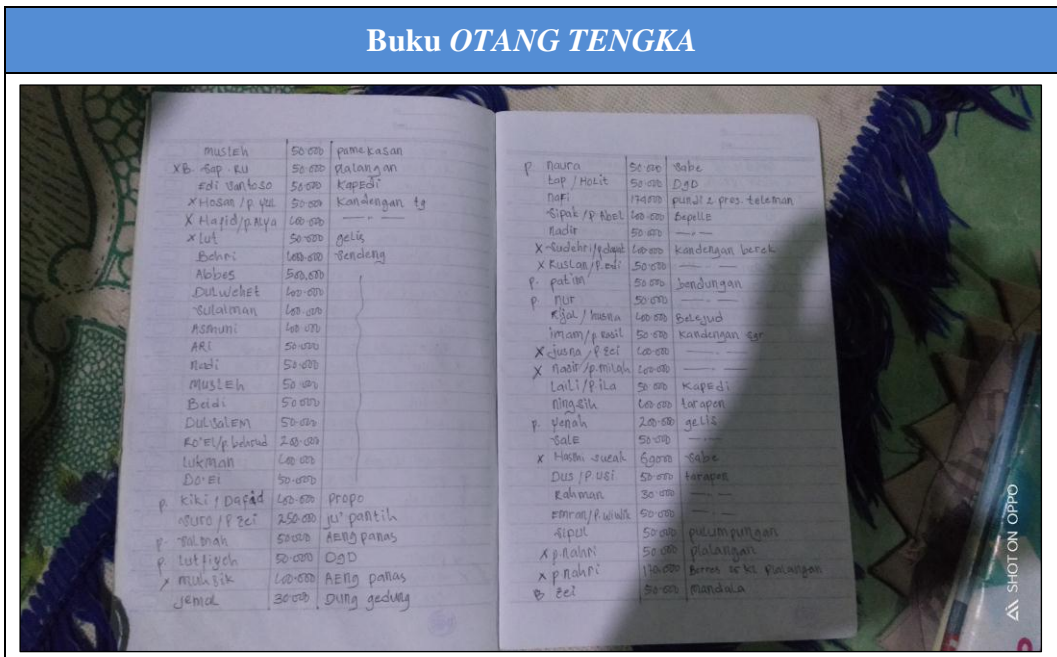 Buku OTANG TENGKA
muslEh 50.000 pamekasan
XB. Sap. RU 50.000 plalangan
Edi Santoso 50.000 KapEdi
X Hosan / p. yul 50.000 Kandengan tg
X Hapid / p. Alya 100.000 —— · —
X lut 50.000 gelis
Behri 100.000 Sendeng
Abbes 500.000
DULWehEt 100.000
Sulaiman 100.000
ASmuni 100.000
ARI 50.000
Nadi 50.000
MUSLEh 50.000
Beidi 50.000
DULSalEM 50.000
RO'El/p. 200.000
Lukman 100.000
DO'El 50.000
p. Kiki / Dafid 100.000 propo
Suro / P Zei 250.000 ju' pantih
p. Salmah 50000 AEng panas
p. Lutfiyeh 50.000 DgD
X muhsik 100.000 AEng panas
jemal 30.000 Dung gedung
p. naura 50.000 Sabe
tap / HoLit 50.000 DgD
napi 170.000 pundi 2 pros. teleman
Sipak / P. Abel 100.000 Bepelle
nadir 50.000 — · —
X Sudehri / 100.000 Kandengan berek
X Ruslan / P. edi 50.000 —— · ——
P. patim 50.000 bendungan
p. nur 50.000 —— · —
Rijal / hasna 100.000 Belejud
imam / p. Rasil 50.000 Kandengan
X jusna / P Zei 100.000 —— · —
X nasir / p. milah 100.000 —— · —
Laili / P. ila 50.000 KapEdi
ningsih 100.000 tarapen
p. yenah 200.000 gelis
SalE 50.000 —— · —
X Hasmi 60000 Sabe
Dus / P. USi 50.000 tarapen
Rahman 30.000 —— · —
Emran / P. wiwik 50.000 —— · —
Sipul 50.000 pulumpungan
X p. nahri 50.000 plalangan
X p. nahri 170.000 Berres 25 KL plalangan
B Zei 50.000 mandala
SHOT ON OPPO